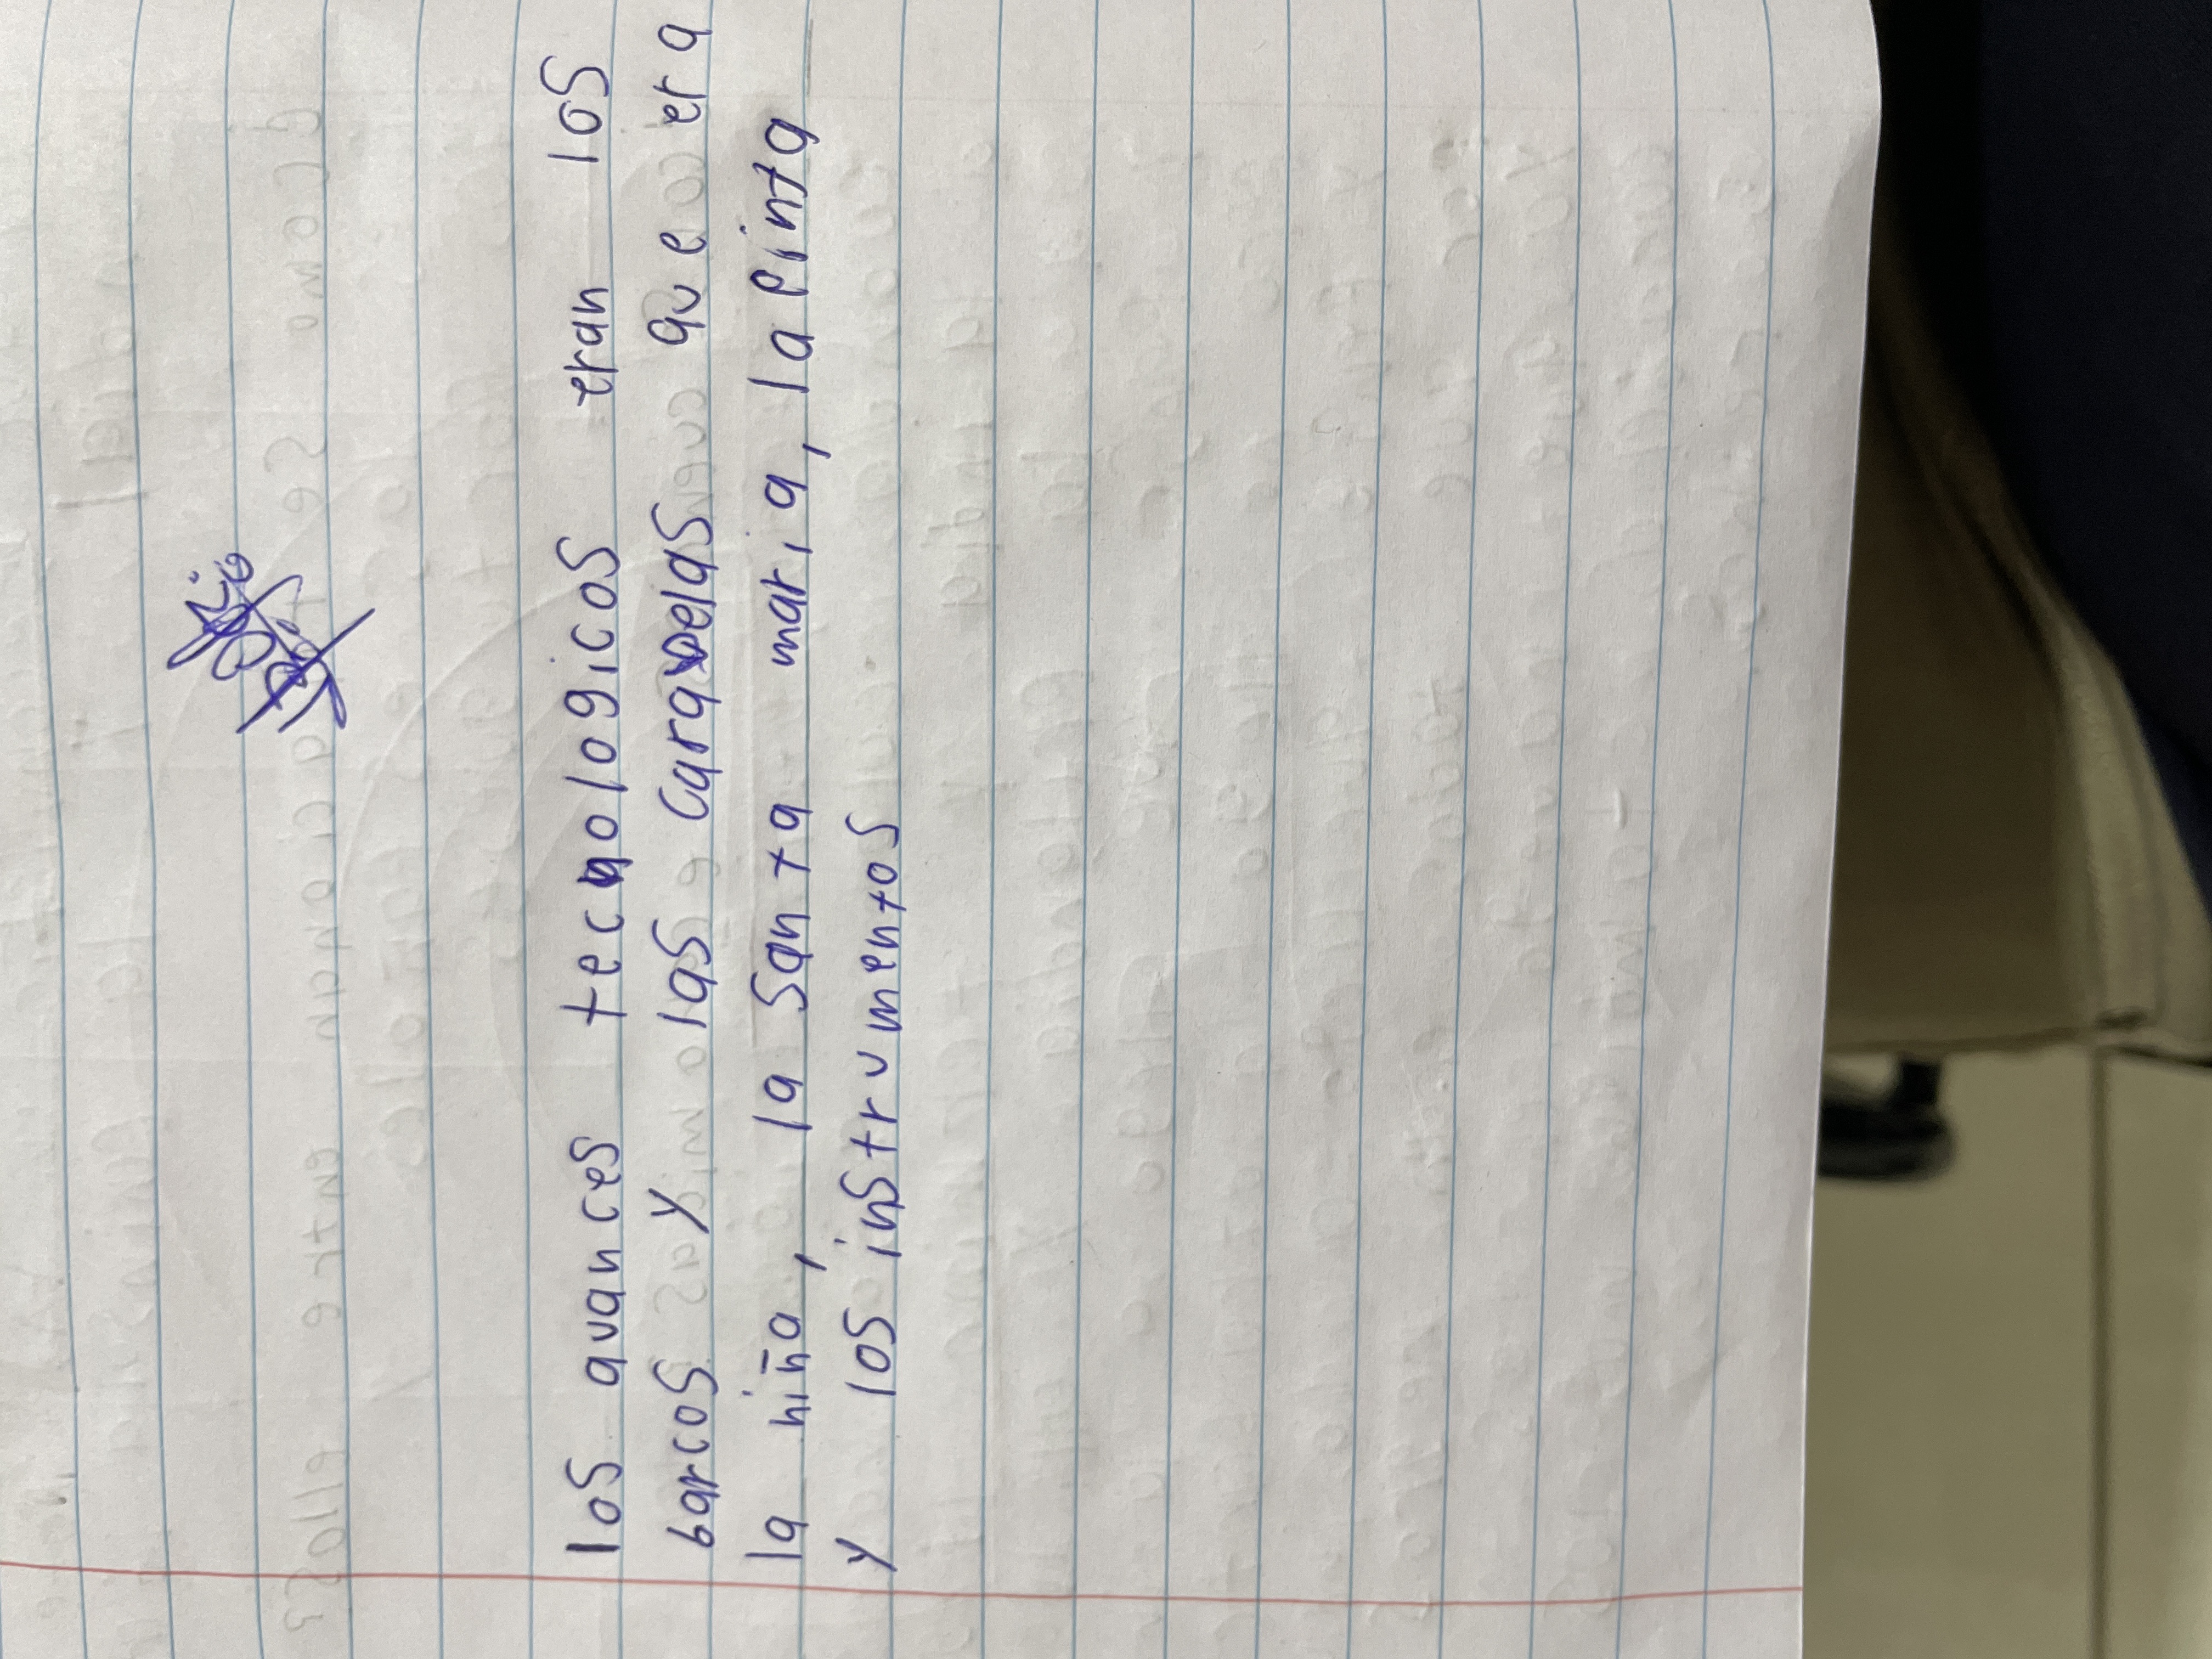 los avances tecnologicos eran los
barcos y las carabelas que era
la niña, la santa maria, la pinta
y los instrumentos